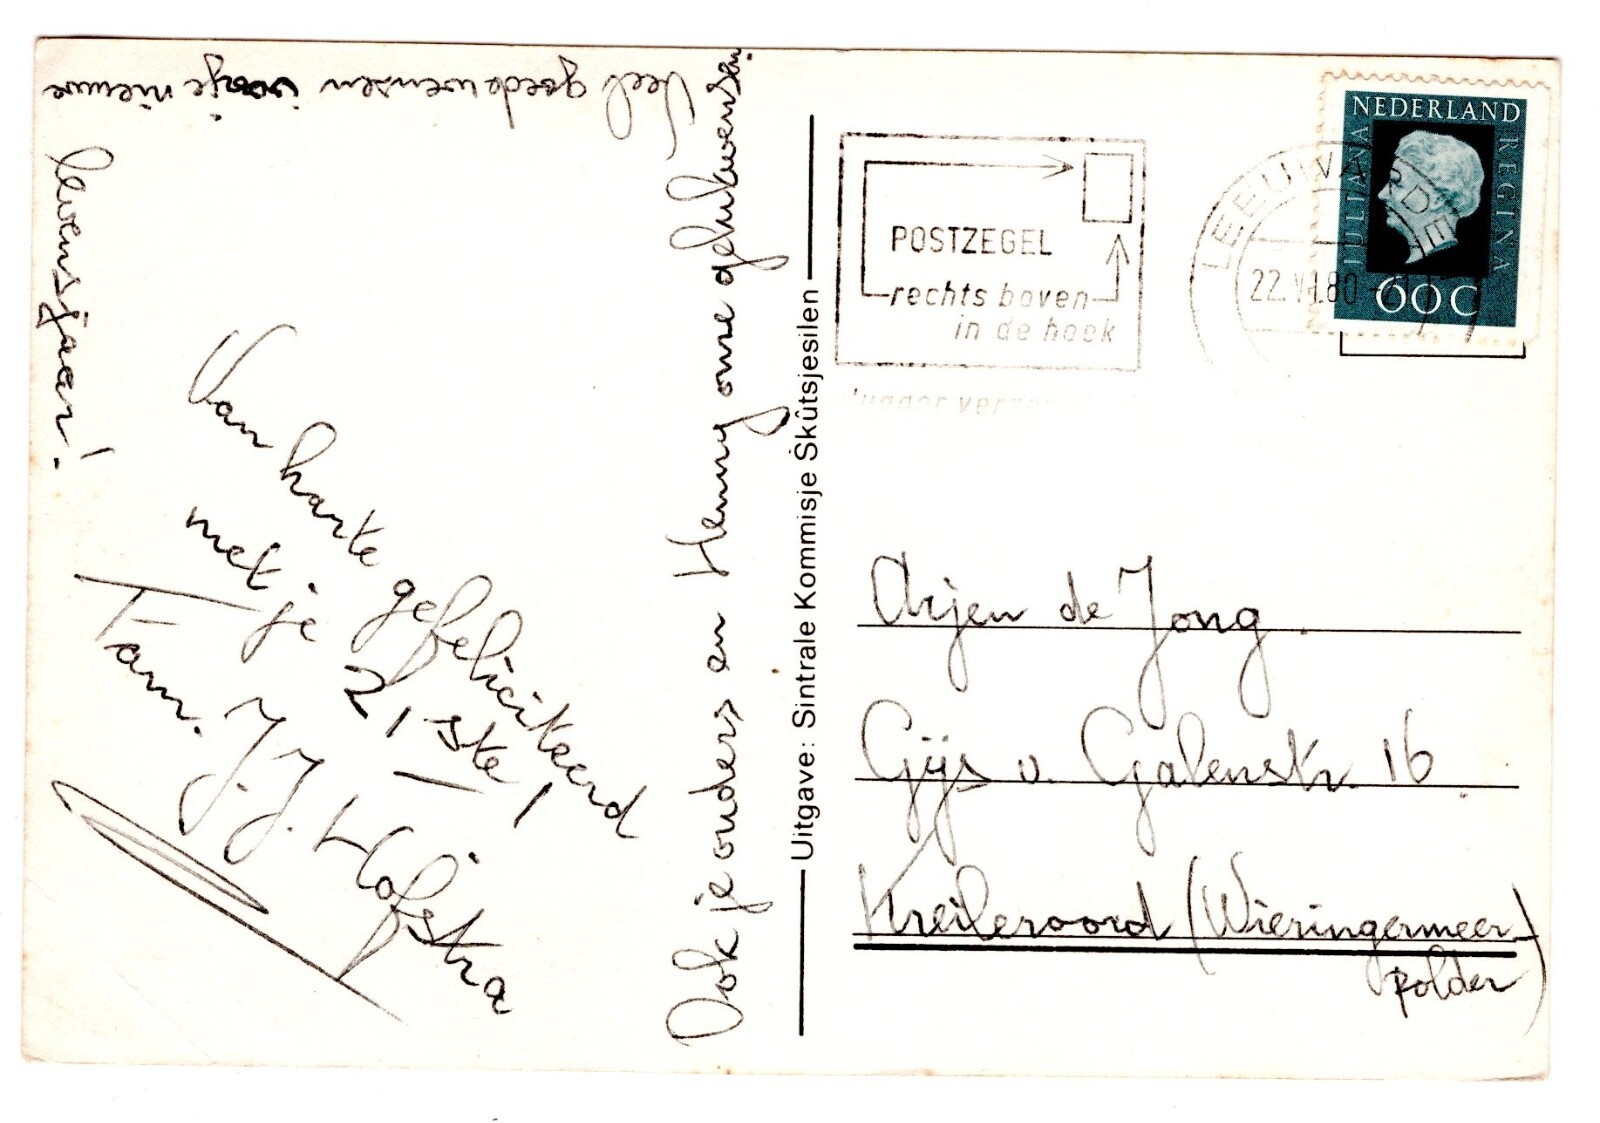 Van harte gefeliciteerd
met je 21ste!
Fam. J.J. Hofstra
Ook je ouders en Henny onze gelukwensen.
Veel goede wensen voor je nieuwe
levensjaar!
Uitgave: Sintrale Kommisje Skûtsjesilen
POSTZEGEL
rechts boven
in de hoek
LEEUWARDEN
NEDERLAND
JULIANA
REGINA
60C
Arjen de Jong.
Gijs v. Galenstr. 16
Kreileroord (Wieringermeer-
polder)